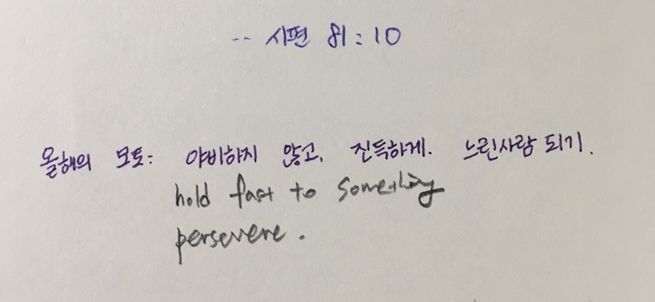 -- 시편 81:10
올해의 모토: 야비하지 않고, 진득하게. 느린사람 되기.
hold fast to something
persevere.